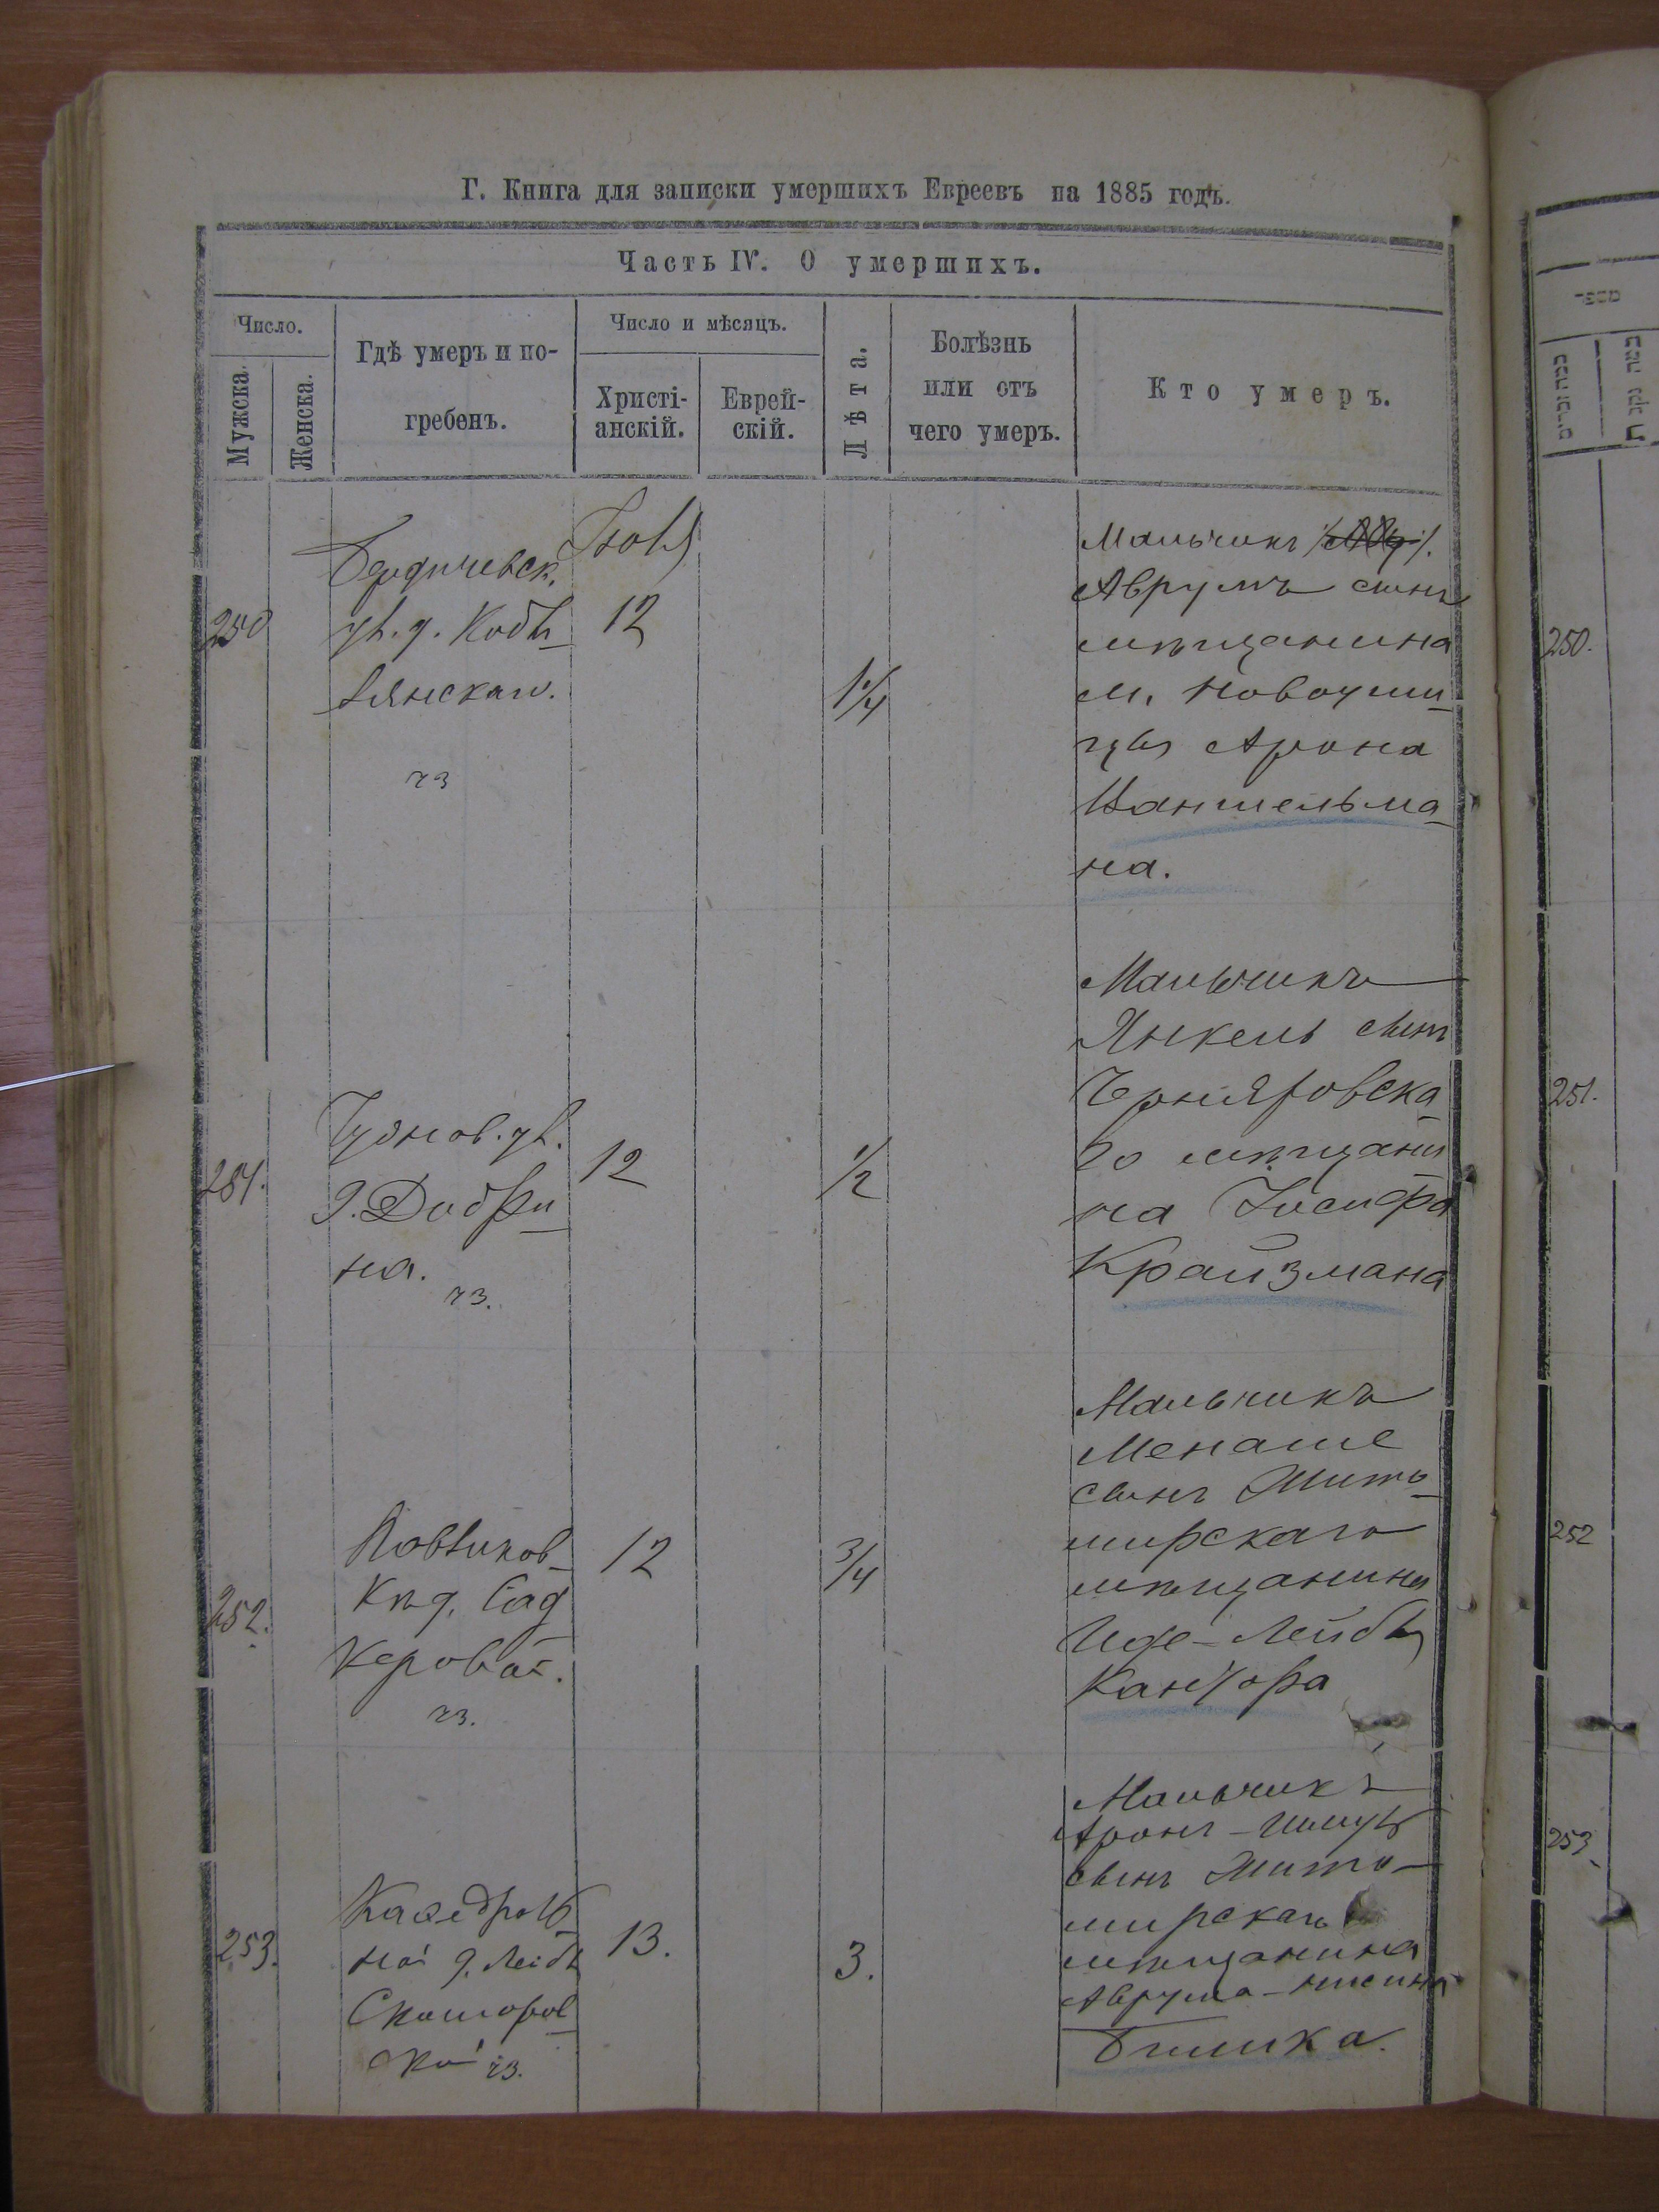 Г. Книга для записки умершихъ Евреевъ на 1885 годъ.
Часть IV. О умершихъ.
Число.
Мужска.
Женска.
Гдѣ умеръ и по-
гребенъ.
Число и мѣсяцъ.
Христі-
анскій.
Еврей-
скій.
Лѣта.
Болѣзнь
или отъ
чего умеръ.
Кто умеръ.
250
Бердичевск.
ул. д. Кобы
лянскаго.
чз
Іюля
12
1 1/4
Мальчикъ
Аврумъ сынъ
мѣщанина
м. Новоуши
цы Арона
Каншельма
на.
251.
Чуднов. ул.
д. Добри
на.
чз.
12
1/2
Мальчикъ
Янкель сынъ
Черняховска
го мѣщани
на Іосифа
Крайзмана
252.
12
3/4
Мальчикъ
Менаше
сынъ Жито
мирскаго
мѣщанина
Иде-Лейбы
Кантора
чз.
253.
Каѳедраль
ной д. Лейбы
ской чз.
13.
3.
Мальчикъ
Аронъ-
сынъ Жито-
мирскаго
мѣщанина
Аврума-Нисина
250.
251.
252
253